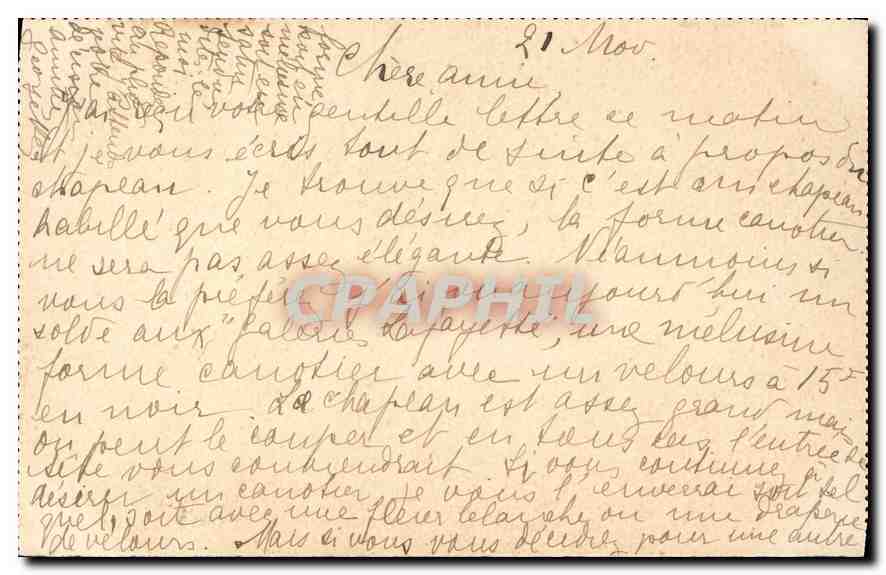 21 Nov.
Chère amie,
J'ai reçu votre gentille lettre ce matin
et je vous écris tout de suite à propos du
chapeau. Je trouve que si c'est un chapeau
habillé que vous désirez, la forme canotier
ne sera pas assez élégante. Néanmoins si
vous la préférez j'ai vu aujourd'hui un
solde aux "Galeries Lafayette", une mélusine
forme canotier avec un velours à 15F
en noir. Le chapeau est assez grand mais
on peut le couper et en tous cas l'entrée de
tête vous conviendrait. Si vous continuez à
désirer un canotier je vous l'enverrai soit tel
quel, soit avec une fleur blanche ou une draperie
de velours. Mais si vous vous décidez pour une autre
forme
soit en
mélusine
soit en
satin
moi
répondez
au plus
vite
votre
amie
Georgette
CPAPHIL